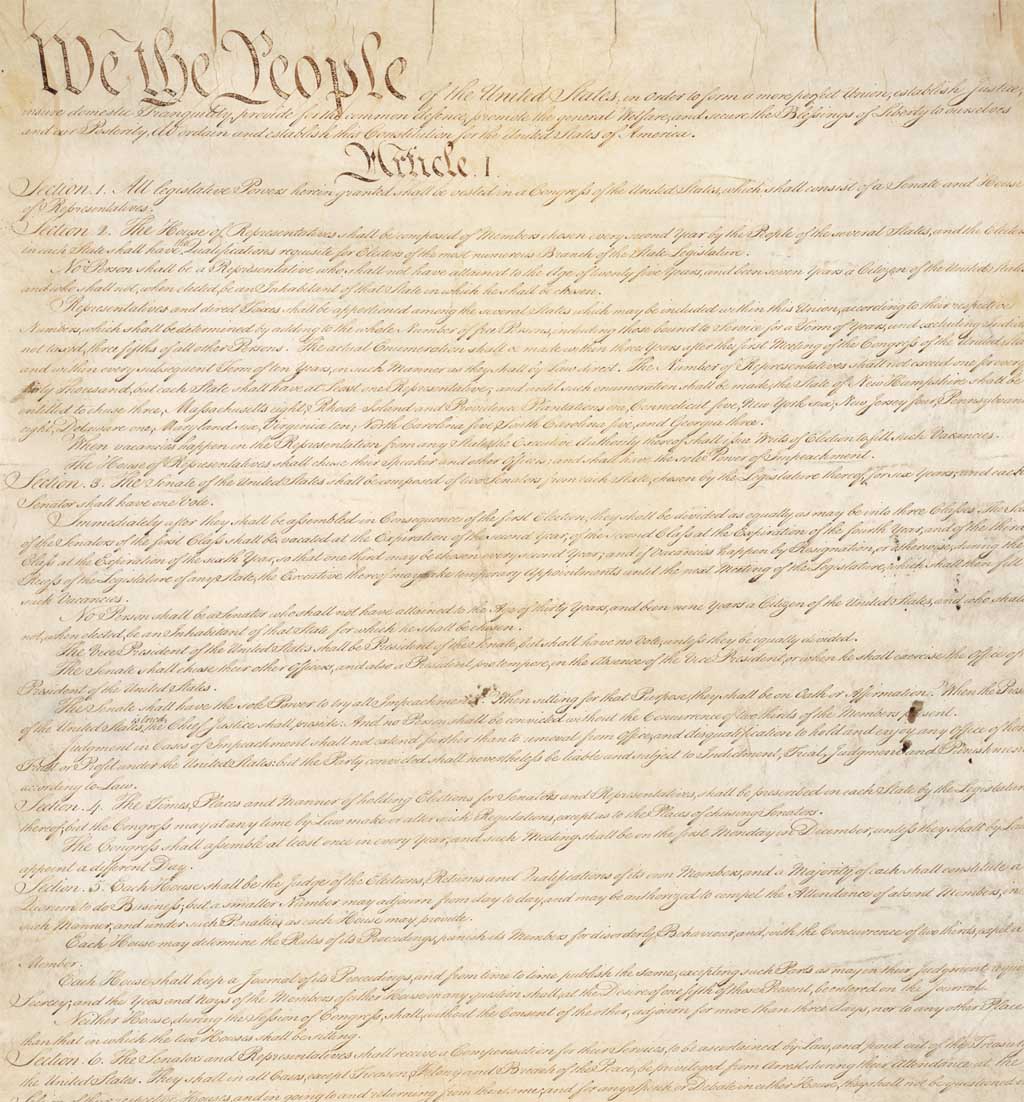 We the People of the United States, in Order to form a more perfect Union, establish Justice,
insure domestic Tranquility, provide for the common defence, promote the general Welfare, and secure the Blessings of Liberty to ourselves
and our Posterity, do ordain and establish this Constitution for the United States of America.
Article. I.
Section. 1. All legislative Powers herein granted shall be vested in a Congress of the United States, which shall consist of a Senate and House
of Representatives.
Section. 2. The House of Representatives shall be composed of Members chosen every second Year by the People of the several States, and the Electors
in each State shall have the Qualifications requisite for Electors of the most numerous Branch of the State Legislature.
No Person shall be a Representative who shall not have attained to the Age of twenty five Years, and been seven Years a Citizen of the United States,
and who shall not, when elected, be an Inhabitant of that State in which he shall be chosen.
Representatives and direct Taxes shall be apportioned among the several States which may be included within this Union, according to their respective
Numbers, which shall be determined by adding to the whole Number of free Persons, including those bound to Service for a Term of Years, and excluding Indians
not taxed, three fifths of all other Persons. The actual Enumeration shall be made within three Years after the first Meeting of the Congress of the United States,
and within every subsequent Term of ten Years, in such Manner as they shall by Law direct. The Number of Representatives shall not exceed one for every
thirty Thousand, but each State shall have at Least one Representative; and until such enumeration shall be made, the State of New Hampshire shall be
entitled to chuse three, Massachusetts eight, Rhode-Island and Providence Plantations one, Connecticut five, New-York six, New Jersey four, Pennsylvania
eight, Delaware one, Maryland six, Virginia ten, North Carolina five, South Carolina five, and Georgia three.
When vacancies happen in the Representation from any State, the Executive Authority thereof shall issue Writs of Election to fill such Vacancies.
The House of Representatives shall chuse their Speaker and other Officers; and shall have the sole Power of Impeachment.
Section. 3. The Senate of the United States shall be composed of two Senators from each State, chosen by the Legislature thereof, for six Years; and each
Senator shall have one Vote.
Immediately after they shall be assembled in Consequence of the first Election, they shall be divided as equally as may be into three Classes. The Seats
of the Senators of the first Class shall be vacated at the Expiration of the second Year, of the second Class at the Expiration of the fourth Year, and of the third
Class at the Expiration of the sixth Year, so that one third may be chosen every second Year; and if Vacancies happen by Resignation, or otherwise, during the
Recess of the Legislature of any State, the Executive thereof may make temporary Appointments until the next Meeting of the Legislature, which shall then fill
such Vacancies.
No Person shall be a Senator who shall not have attained to the Age of thirty Years, and been nine Years a Citizen of the United States, and who shall
not, when elected, be an Inhabitant of that State for which he shall be chosen.
The Vice President of the United States shall be President of the Senate, but shall have no Vote, unless they be equally divided.
The Senate shall chuse their other Officers, and also a President pro tempore, in the Absence of the Vice President, or when he shall exercise the Office of
President of the United States.
The Senate shall have the sole Power to try all Impeachments. When sitting for that Purpose, they shall be on Oath or Affirmation. When the President
of the United States is tried, the Chief Justice shall preside: And no Person shall be convicted without the Concurrence of two thirds of the Members present.
Judgment in Cases of Impeachment shall not extend further than to removal from Office, and disqualification to hold and enjoy any Office of honor,
Trust or Profit under the United States: but the Party convicted shall nevertheless be liable and subject to Indictment, Trial, Judgment and Punishment,
according to Law.
Section. 4. The Times, Places and Manner of holding Elections for Senators and Representatives, shall be prescribed in each State by the Legislature
thereof; but the Congress may at any time by Law make or alter such Regulations, except as to the Places of chusing Senators.
The Congress shall assemble at least once in every Year, and such Meeting shall be on the first Monday in December, unless they shall by Law
appoint a different Day.
Section. 5. Each House shall be the Judge of the Elections, Returns and Qualifications of its own Members, and a Majority of each shall constitute a
Quorum to do Business; but a smaller Number may adjourn from day to day, and may be authorized to compel the Attendance of absent Members, in
such Manner, and under such Penalties as each House may provide.
Each House may determine the Rules of its Proceedings, punish its Members for disorderly Behaviour, and, with the Concurrence of two thirds, expel a
Member.
Each House shall keep a Journal of its Proceedings, and from time to time publish the same, excepting such Parts as may in their Judgment require
Secrecy; and the Yeas and Nays of the Members of either House on any question shall, at the Desire of one fifth of those Present, be entered on the Journal.
Neither House, during the Session of Congress, shall, without the Consent of the other, adjourn for more than three days, nor to any other Place
than that in which the two Houses shall be sitting.
Section. 6. The Senators and Representatives shall receive a Compensation for their Services, to be ascertained by Law, and paid out of the Treasury of
the United States. They shall in all Cases, except Treason, Felony and Breach of the Peace, be privileged from Arrest during their Attendance at the
Session of their respective Houses, and in going to and returning from the same; and for any Speech or Debate in either House, they shall not be questioned